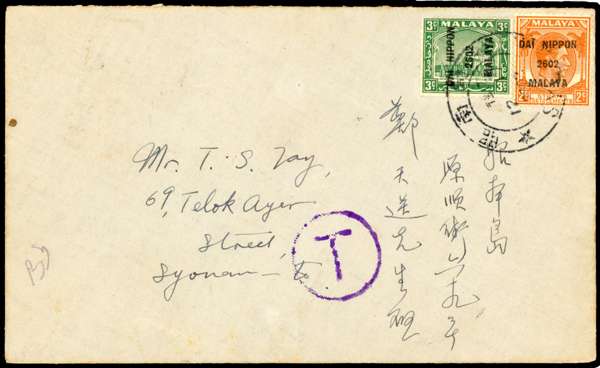 3c MALAYA 3c
DAI NIPPON
2602
MALAYA
MALAYA
DAI NIPPON
2602
MALAYA
2c
Mr. T. S. Tay,
69, Telok Ayer
Street,
Syonan-to.
T
昭南島
原順街六九號
鄭天送先生